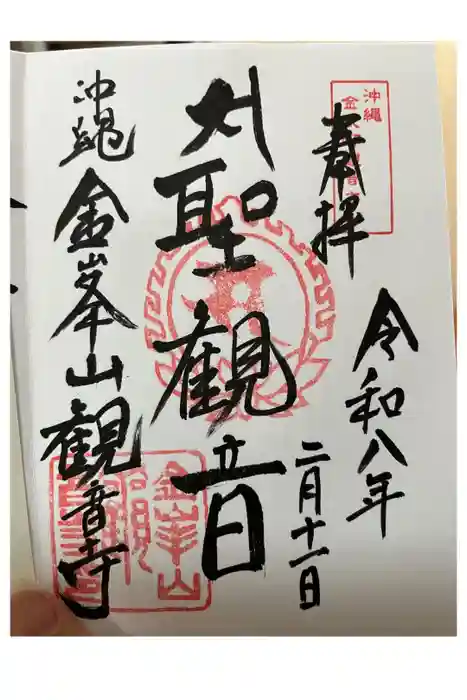 奉拝
沖縄
令和八年
二月十一日
大聖観音
沖縄 金峯山観音寺
金峯山